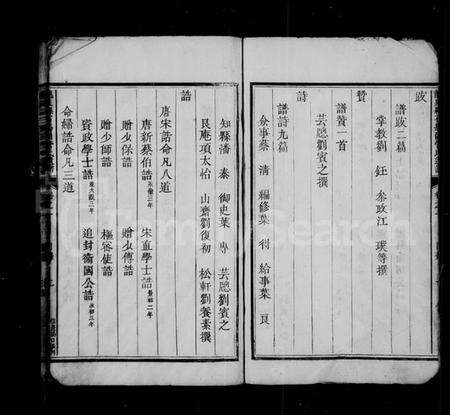 跋
譜跋二篇
掌教劉 鈺 參政江 璞等撰
贊
譜贊一首
芸牕劉賓之撰
詩
譜詩九篇
僉事蔡 清 編修葉 給事葉 艮
知縣潘 泰 御史葉 專 芸牕劉賓之
艮庵項太怡 山齋劉復初 松軒劉養素撰
誥
唐宋誥命凡八道
唐新蔡伯誥 宋直學士誥
贈少保誥 樞密使誥
贈少師誥 贈少傅誥
資政學士誥 追封衛國公誥
命婦誥命凡三道